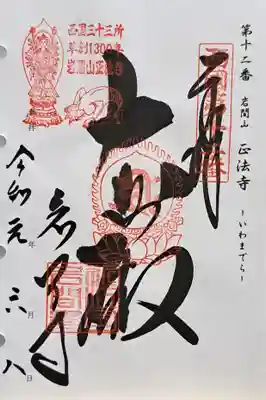 第十二番 岩間山 正法寺 -いわまでら-
奉拝
大悲殿
岩間寺
令和元年六月八日
西国三十三所
草創1300年
岩間山正法寺